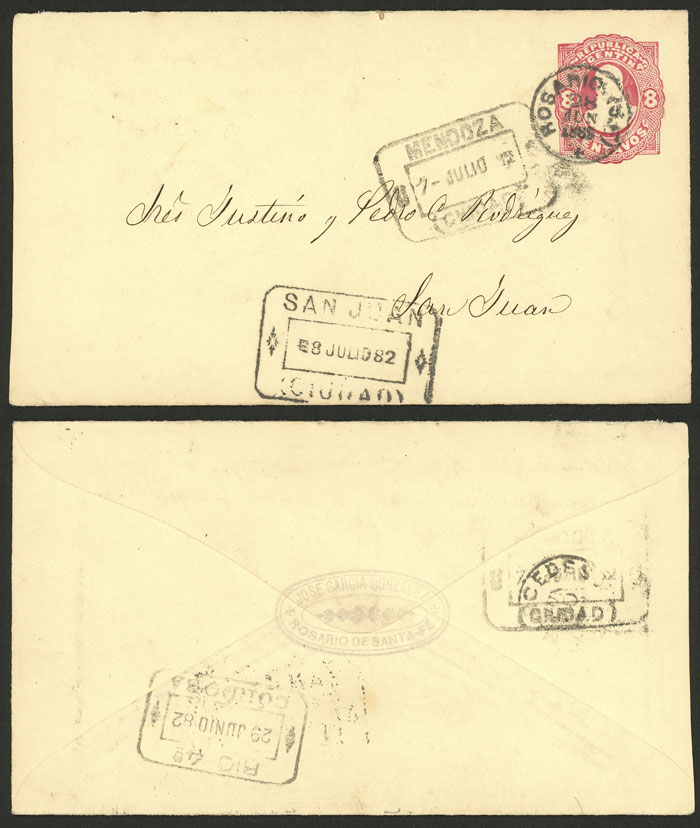 REPUBLICA
ARGENTINA
8 8
CENTAVOS
ROSARIO
28
1882
MENDOZA
7- JULIO 82
(CIUDAD)
Srés Justino y Pedro C. Rodríguez
San Juan
SAN JUAN
8 JULIO 82
(CIUDAD)
JOSE GARCIA GONZALEZ
ROSARIO DE SANTA-FÉ
CEDES
(CIUDAD)
RIO 4º
29 JUNIO 82
CORDOBA